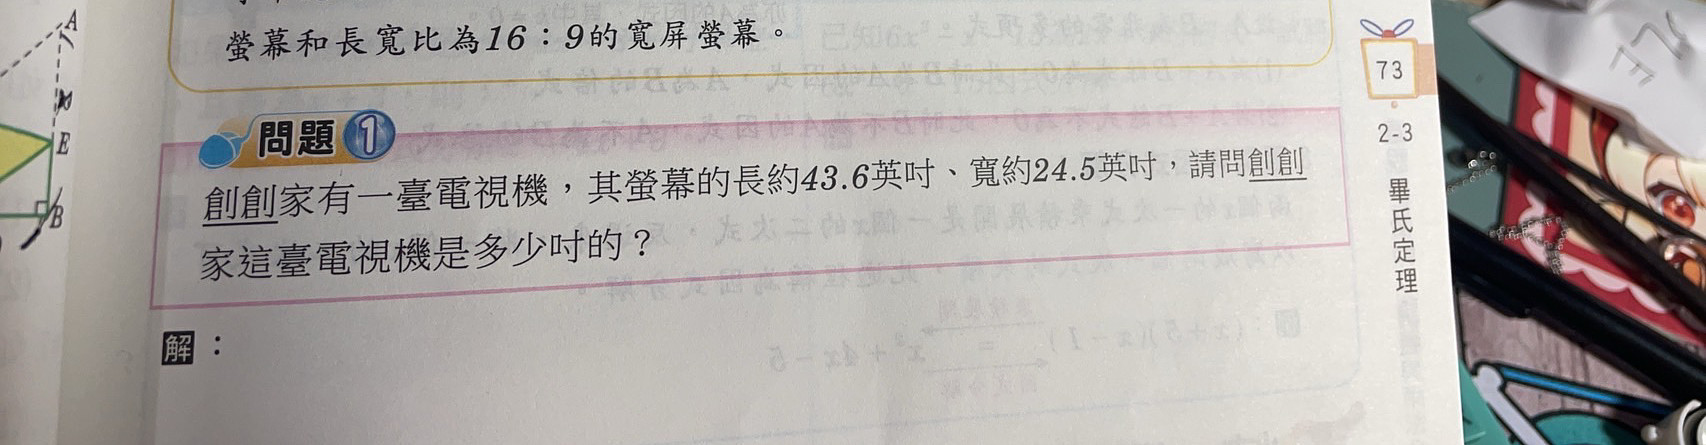 螢幕和長寬比為16：9的寬屏螢幕。
問題1
創創家有一臺電視機，其螢幕的長約43.6英吋、寬約24.5英吋，請問創創
家這臺電視機是多少吋的？
解：
A
E
B
73
2-3
畢氏定理